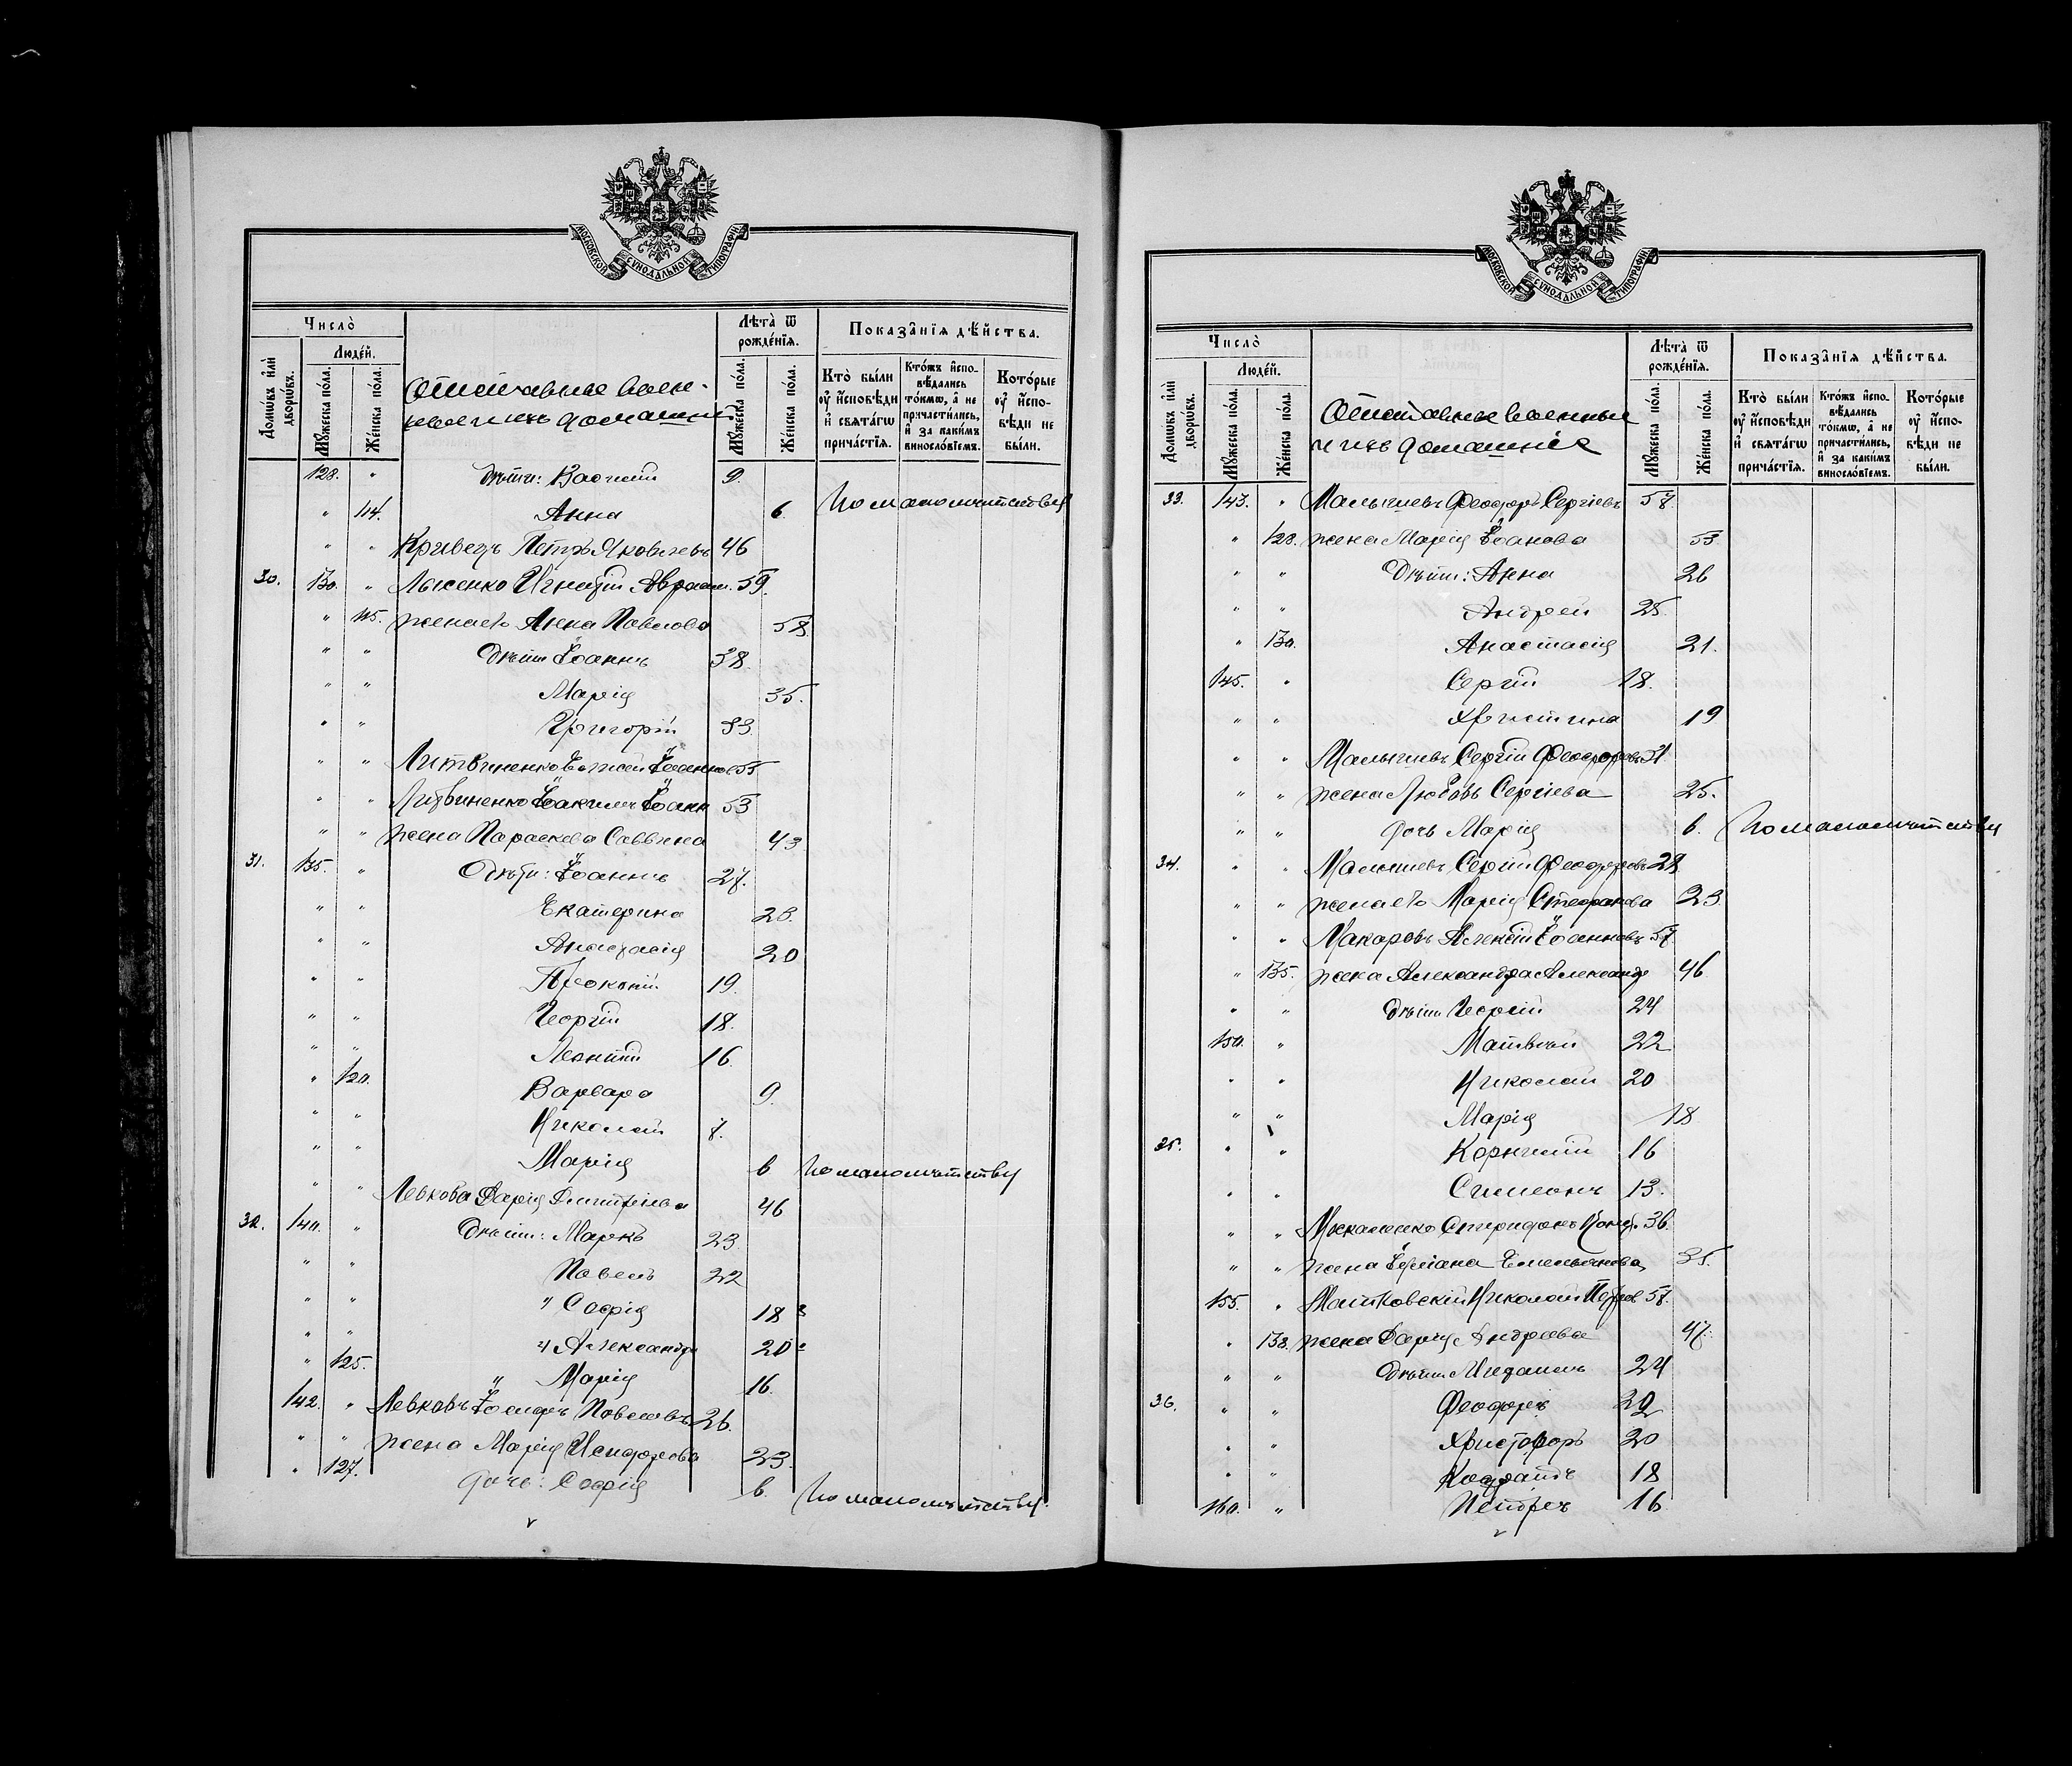 МОСКОВСКОЙ СУНОДАЛЬНОЙ ТИПОГРАФІИ
Число̀
Домѡвъ и҆лѝ дворѡвъ.
Люде́й.
Мꙋ́жеска по́ла.
Же́нска по́ла.
Отставные воен-
ные и ихъ домашніе
Лѣта̀ ѿ рожде́нїѧ.
Мꙋ́жеска по́ла.
Же́нска по́ла.
Показа̑нїѧ дѣ́йства.
Кто̀ бы́ли оу҆ и҆сповѣ́ди и҆ свѧта́гѡ прича́стїѧ.
Кто́жъ и҆спо-вѣ́дались то́кмѡ, а҆ не причасти́лись, и҆ за каки́мъ виносло́вїемъ.
Кото́рые оу҆ и҆спо-вѣ́ди не бы́ли.
128. " дѣти: Василій 9.
" 114. Анна 6 по малолѣтству
" " Кривецъ Петръ Яковлевъ 46
30. 130. " Лысенко Игнатій Авраам. 59.
" 115. жена его Анна Павлова 58.
" " дѣти Іоаннъ 38.
" " Марія 35.
" " Григорій 33.
" " Литвиненко Іоанно 55
" " Литвиненко Іоакимъ Іоанн 53
" " жена Параскева Саввина 43
31. 135. " дѣти: Іоаннъ 27.
" " Екатерина 23.
" " Анастасія 20
" " Прокопій 19.
" " Георгій 18.
" " Леонтій 16
" 120. Варвара 9.
" " Николай 7.
" " Марія 6 по малолѣтству
" " Левкова Дарія Димитріева 46
32. 140. " дѣти: Маркъ 23.
" " Павелъ 22
" " " Софія 18
" " " Александра 20
" 125. " Марія 16.
142. " Левковъ Іосифъ Павловъ 26.
" " жена Марія Исидорова 23.
" 127. дочь: Софія 6. по малолѣтству.
МОСКОВСКОЙ СУНОДАЛЬНОЙ ТИПОГРАФІИ
Число̀
Домѡвъ и҆лѝ дворѡвъ.
Люде́й.
Мꙋ́жеска по́ла.
Же́нска по́ла.
Отставные военные
и ихъ домашніе
Лѣта̀ ѿ рожде́нїѧ.
Мꙋ́жеска по́ла.
Же́нска по́ла.
Показа̑нїѧ дѣ́йства.
Кто̀ бы́ли оу҆ и҆сповѣ́ди и҆ свѧта́гѡ прича́стїѧ.
Кто́жъ и҆спо-вѣ́дались то́кмѡ, а҆ не причасти́лись, и҆ за каки́мъ виносло́вїемъ.
Кото́рые оу҆ и҆спо-вѣ́ди не бы́ли.
33. 143. " Малышевъ Феодоръ Сергіевъ 57.
" 128. жена Марія Іоанова 53
" " дѣти: Анна 26
" " Андрей 25.
" 130. Анастасія 21.
145. " Сергій 18.
" " Христина 19
" " Малышевъ Сергій Феодоровъ 31.
" " жена Любовь Сергіева 25.
" " дочь Марія 6. по малолѣтству
34. " " Малышевъ Сергій Феодоровъ 28
" " жена его Марія Стефанова 23.
" " Макаровъ Алексій Іоанновъ 57.
" 135. жена Александра Александр 46
" " дѣти Георгій 24
150. " Матвѣй 22
" " Николай 20
" " Марія 18
35. " " Корнилій 16
" " Симеонъ 13.
" " Спиридонъ 36.
" " жена Емельянова 35.
155. " Матковскій Николай Петров 57.
" 138. жена Дарія Андреева 47.
" " дѣти Михаилъ 24
36. " " Феодоръ 22
" " Христофоръ 20
" " Кодратъ 18
160. " Петръ 16.